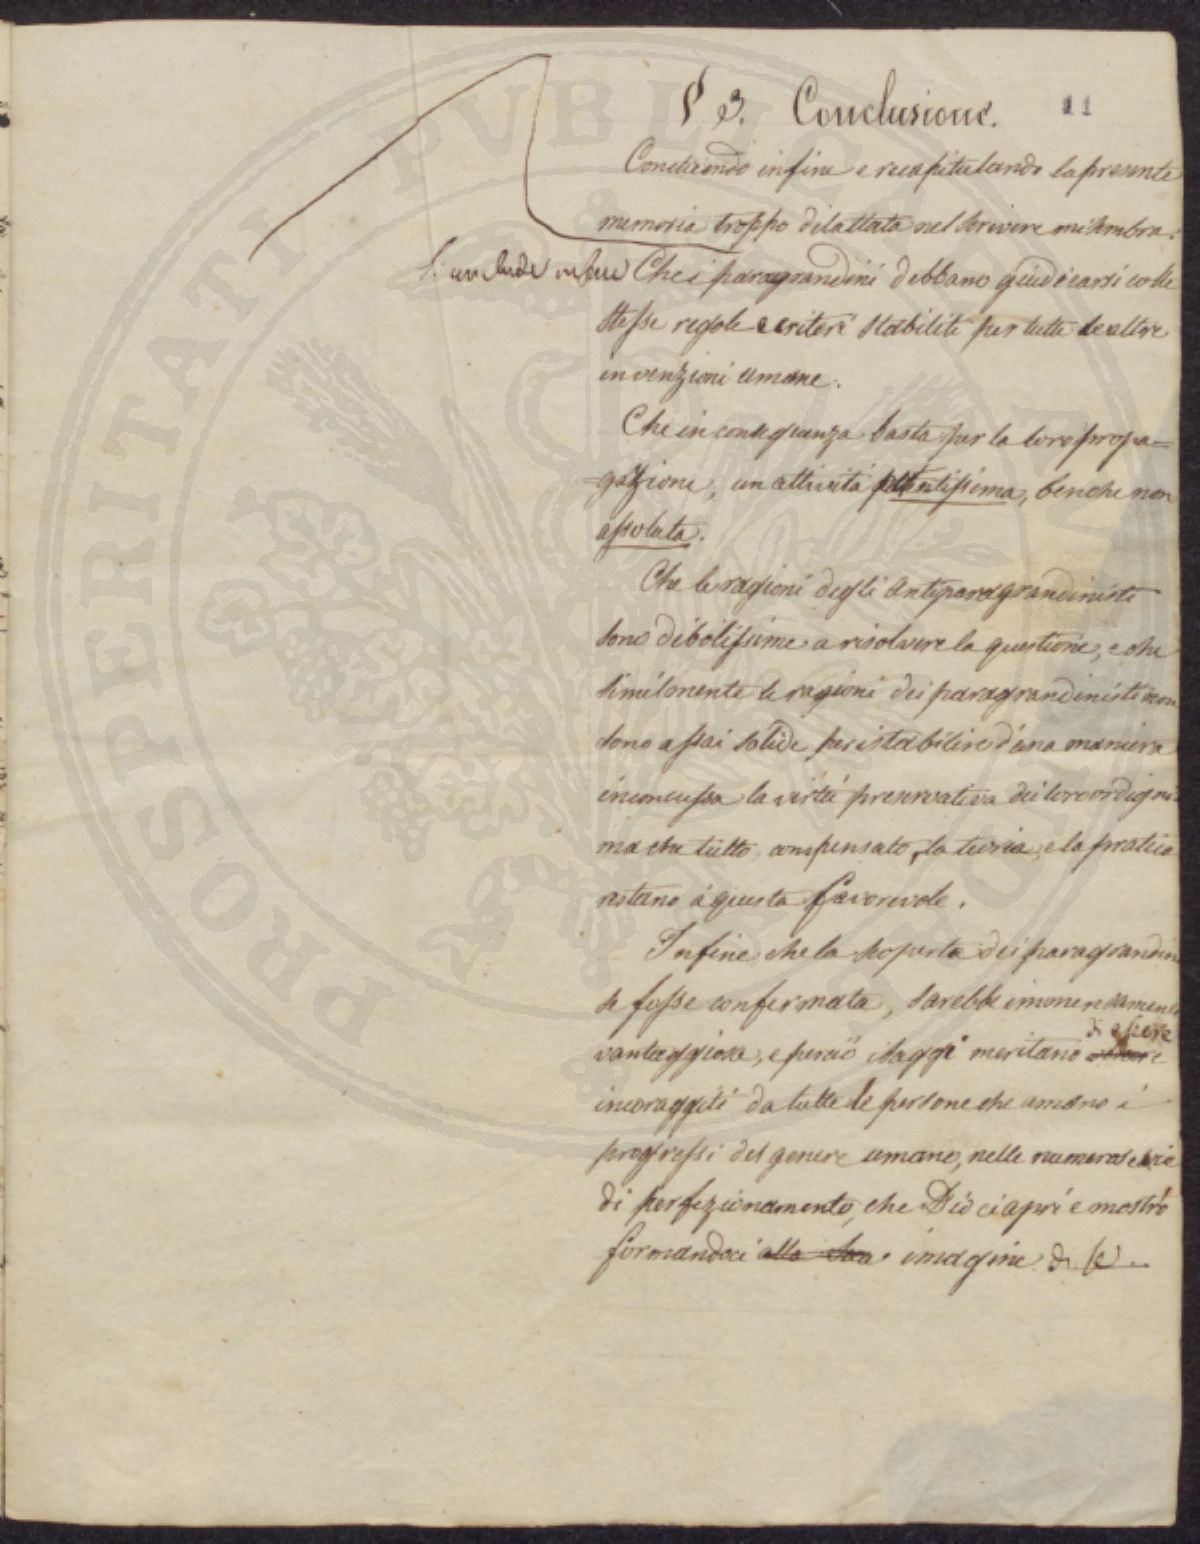 § 3. Conclusione.
11
Concludendo infine e recapitulando la presente
memoria troppo dilattata nel scrivere mi sembra:
Si conclude infine Che i paragrandini debbano giudicarsi colle
stesse regole e criteri stabiliti per tutte le altre
invenzioni umane.
Che in conseguenza basta per la loro propa=
=gazione, un attività potentissima, benche non
assoluta.
Che le ragioni degli Antiparagrandinisti
sono debolissime a risolvere la questione, e che
similmente le ragioni dei paragrandinisti non
sono assai solide per istabilire d'una maniera
inconcussa la virtù preservativa dei loro ordigni
ma che tutto compensato, la teoria, e la pratica
restano à questa favorevole.
Infine che la scoperta dei paragrandini
se fosse confermata, sarebbe immensamente
di essere
vantaggiosa, e perciò i saggi meritano
incoraggiti da tutte le persone che amano i
progressi del genere umano, nelle numerose vie
di perfezionamento, che Dio ci aprì e mostrò
formandoci alla sua imagine di se.
PROSPERITATI PVBLICAE